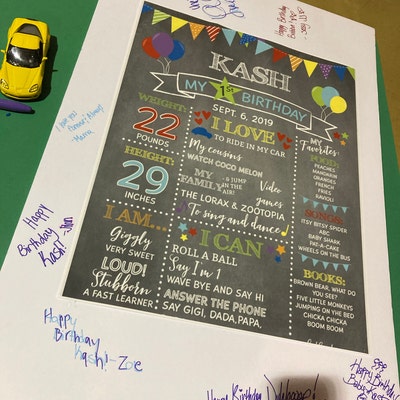 KASH
MY 1st BIRTHDAY
SEPT. 6, 2019
WEIGHT:
22
POUNDS
HEIGHT:
29
INCHES
I AM...
Giggly
VERY SWEET
LOUD!
Stubborn
A FAST LEARNER!
I LOVE
TO RIDE IN MY CAR
My cousins
WATCH COCO MELON
MY FAMILY
& JUMP IN THE AIR!
Video games
THE LORAX & ZOOTOPIA
To sing and dance
I CAN
ROLL A BALL
Say I'm 1
WAVE BYE AND SAY HI
ANSWER THE PHONE
SAY GIGI, DADA, PAPA.
My Favorites:
FOOD:
PEACHES
MANDARIN
ORANGES
FRENCH
FRIES
RAVIOLI
SONGS:
ITSY BITSY SPIDER
ABC
BABY SHARK
PAT-A-CAKE
WHEELS ON THE BUS
BOOKS:
BROWN BEAR, WHAT DO
YOU SEE?
FIVE LITTLE MONKEYS
JUMPING ON THE BED
CHICKA CHICKA
BOOM BOOM
Happy Birthday
I love you
Happy
Birthday
Kash!
Happy
Birthday
Kash!-Zoe
Happy Birthday
Happy Birthday
Baby Kash